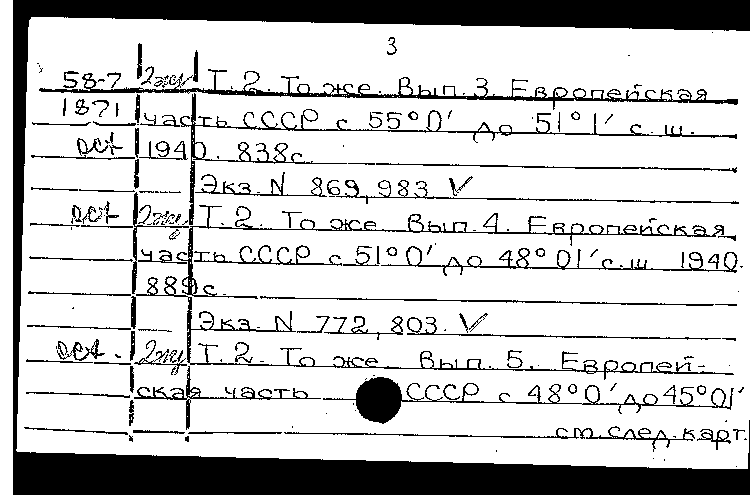 3
58-7 2жу Т.2. То же. Вып. 3. Европейская
1871 часть СССР с 55°0′ до 51°1′ с.ш.
1940. 838с.
Экз. N 869,983 V
Т.2. То же Вып. 4. Европейская
часть СССР с 51°0′ до 48°01′ с.ш. 1940.
889с.
Экз. N 772,803. V
Т.2. То же Вып. 5. Европей-
ская часть СССР с 48°0′ до 45°01′
см. след. карт.